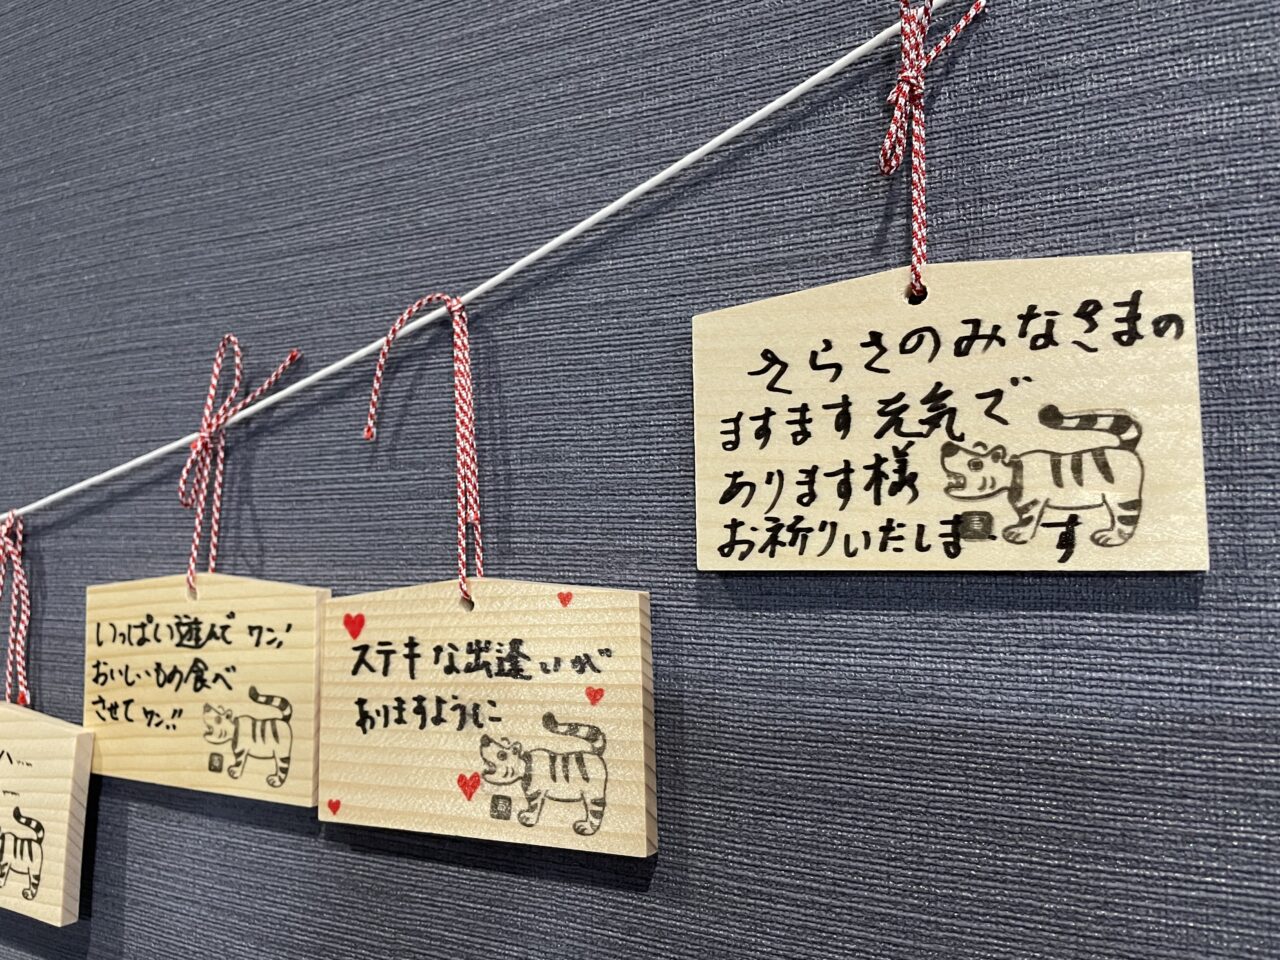 いっぱい遊んでワン!
おいしいもの食べ
させてワン!!
ステキな出逢いが
ありますように
さらさのみなさまの
ますます元気で
あります様
お祈りいたします